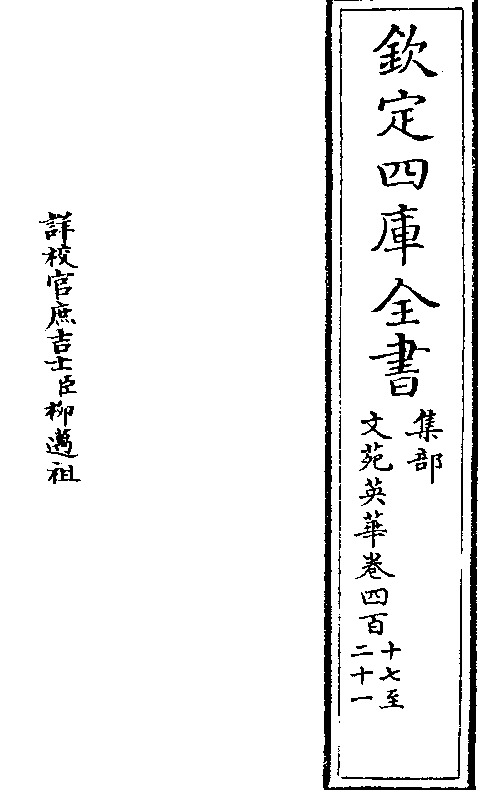 欽定四庫全書
集部
文苑英華卷四百
十七至
二十一
詳校官庶吉士臣柳邁祖